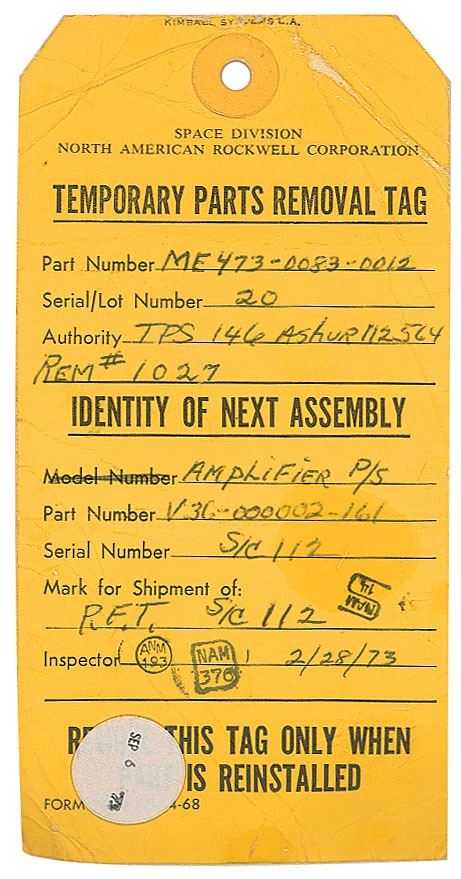 KIMBALL SYSTEMS L.A.
SPACE DIVISION
NORTH AMERICAN ROCKWELL CORPORATION
TEMPORARY PARTS REMOVAL TAG
Part Number ME473-0083-0012
Serial/Lot Number 20
Authority TPS 146
REM# 1027
IDENTITY OF NEXT ASSEMBLY
Model Number AMPLIFIER P/S
Part Number V36-000002-161
Serial Number S/C 112
Mark for Shipment of:
P.E.T. S/C 112
Inspector ANM 193 NAM 376 2/28/73
THIS TAG ONLY WHEN
IS REINSTALLED
SEP 6
FORM 4-68